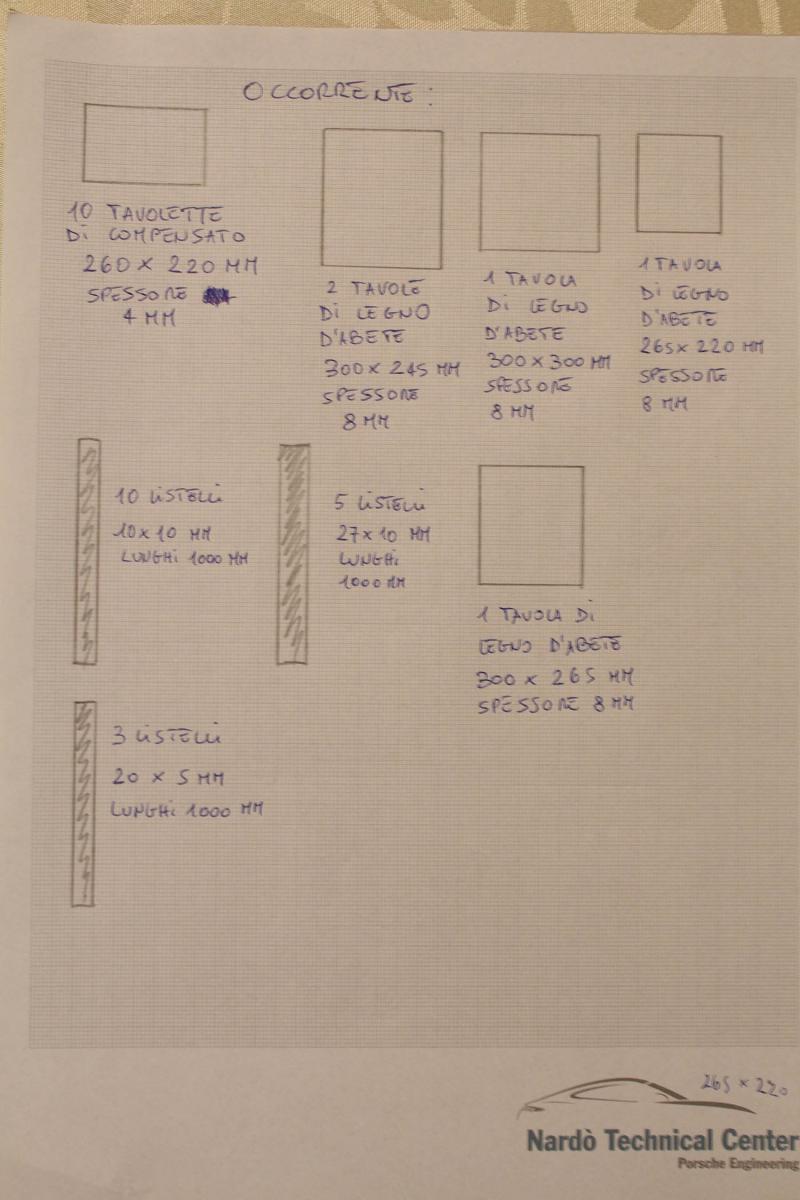 OCCORRENTE:
10 TAVOLETTE
Di COMPENSATO
260 x 220 MM
SPESSORE
4 MM
2 TAVOLE
Di LEGNO
D'ABETE
300 x 245 MM
SPESSORE
8 MM
1 TAVOLA
Di LEGNO
D'ABETE
300 x 300 MM
SPESSORE
8 MM
1 TAVOLA
Di LEGNO
D'ABETE
265 x 220 MM
SPESSORE
8 MM
10 LiSTELLi
10 x 10 MM
LUNGHi 1000 MM
5 LiSTELLi
27 x 10 MM
LUNGHi
1000 MM
1 TAVOLA Di
LEGNO D'ABETE
300 x 265 MM
SPESSORE 8 MM
3 LiSTELLi
20 x 5 MM
LUNGHi 1000 MM
265 x 220
Nardò Technical Center
Porsche Engineering